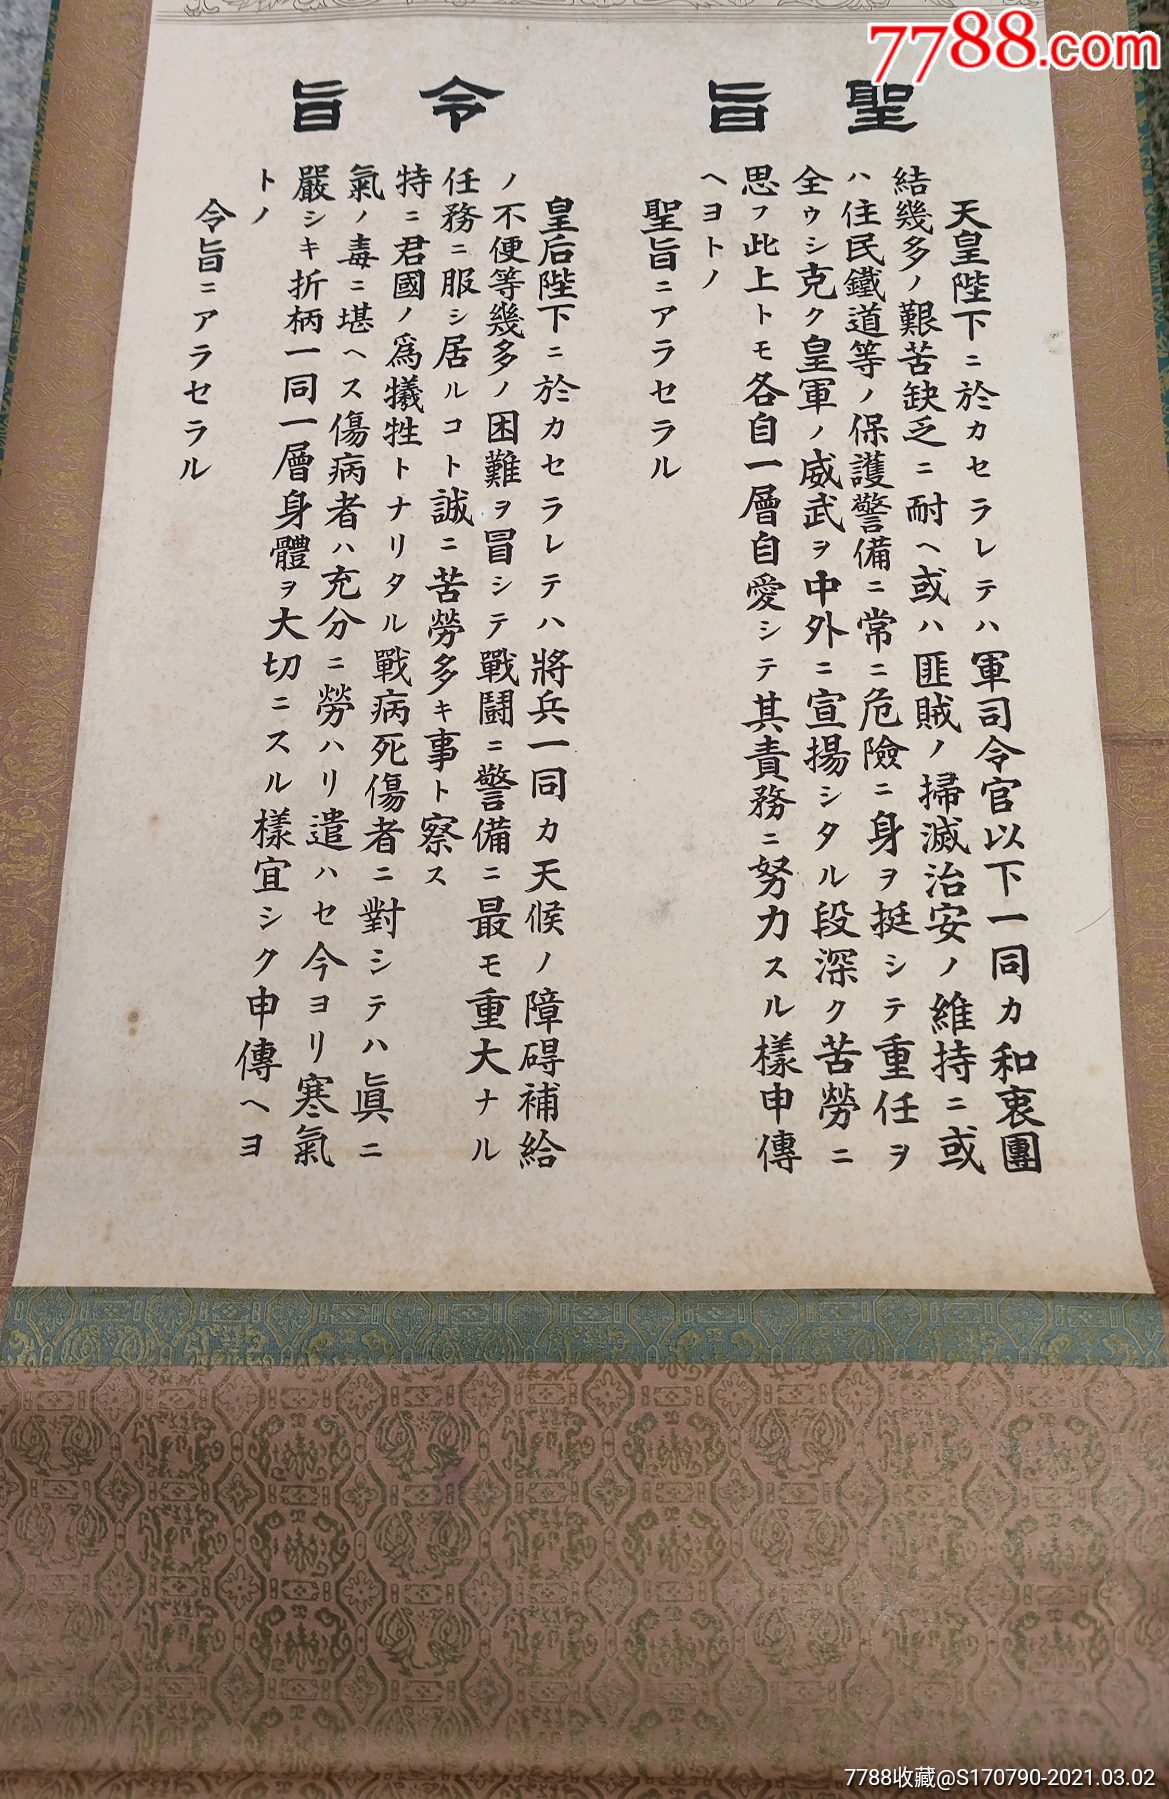 7788.com
聖旨
天皇陛下ニ於カセラレテハ軍司令官以下一同カ和衷團
結幾多ノ艱苦缺乏ニ耐ヘ或ハ匪賊ノ掃滅治安ノ維持ニ或
ハ住民鐵道等ノ保護警備ニ常ニ危險ニ身ヲ挺シテ重任ヲ
全ゥシ克ク皇軍ノ威武ヲ中外ニ宣揚シタル段深ク苦勞ニ
思フ此上トモ各自一層自愛シテ其責務ニ努力スル樣申傳
ヘヨトノ
聖旨ニアラセラル
令旨
皇后陛下ニ於カセラレテハ將兵一同カ天候ノ障碍補給
ノ不便等幾多ノ困難ヲ冒シテ戰鬪ニ警備ニ最モ重大ナル
任務ニ服シ居ルコト誠ニ苦勞多キ事ト察ス
特ニ君國ノ爲犠牲トナリタル戰病死傷者ニ對シテハ眞ニ
氣ノ毒ニ堪ヘス傷病者ハ充分ニ勞ハリ遣ハセ今ヨリ寒氣
嚴シキ折柄一同一層身體ヲ大切ニスル樣宜シク申傳ヘヨ
トノ
令旨ニアラセラル
7788收藏@S170790-2021.03.02